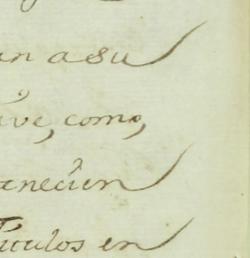 n a su
ve, como,
anecien
Titulos en